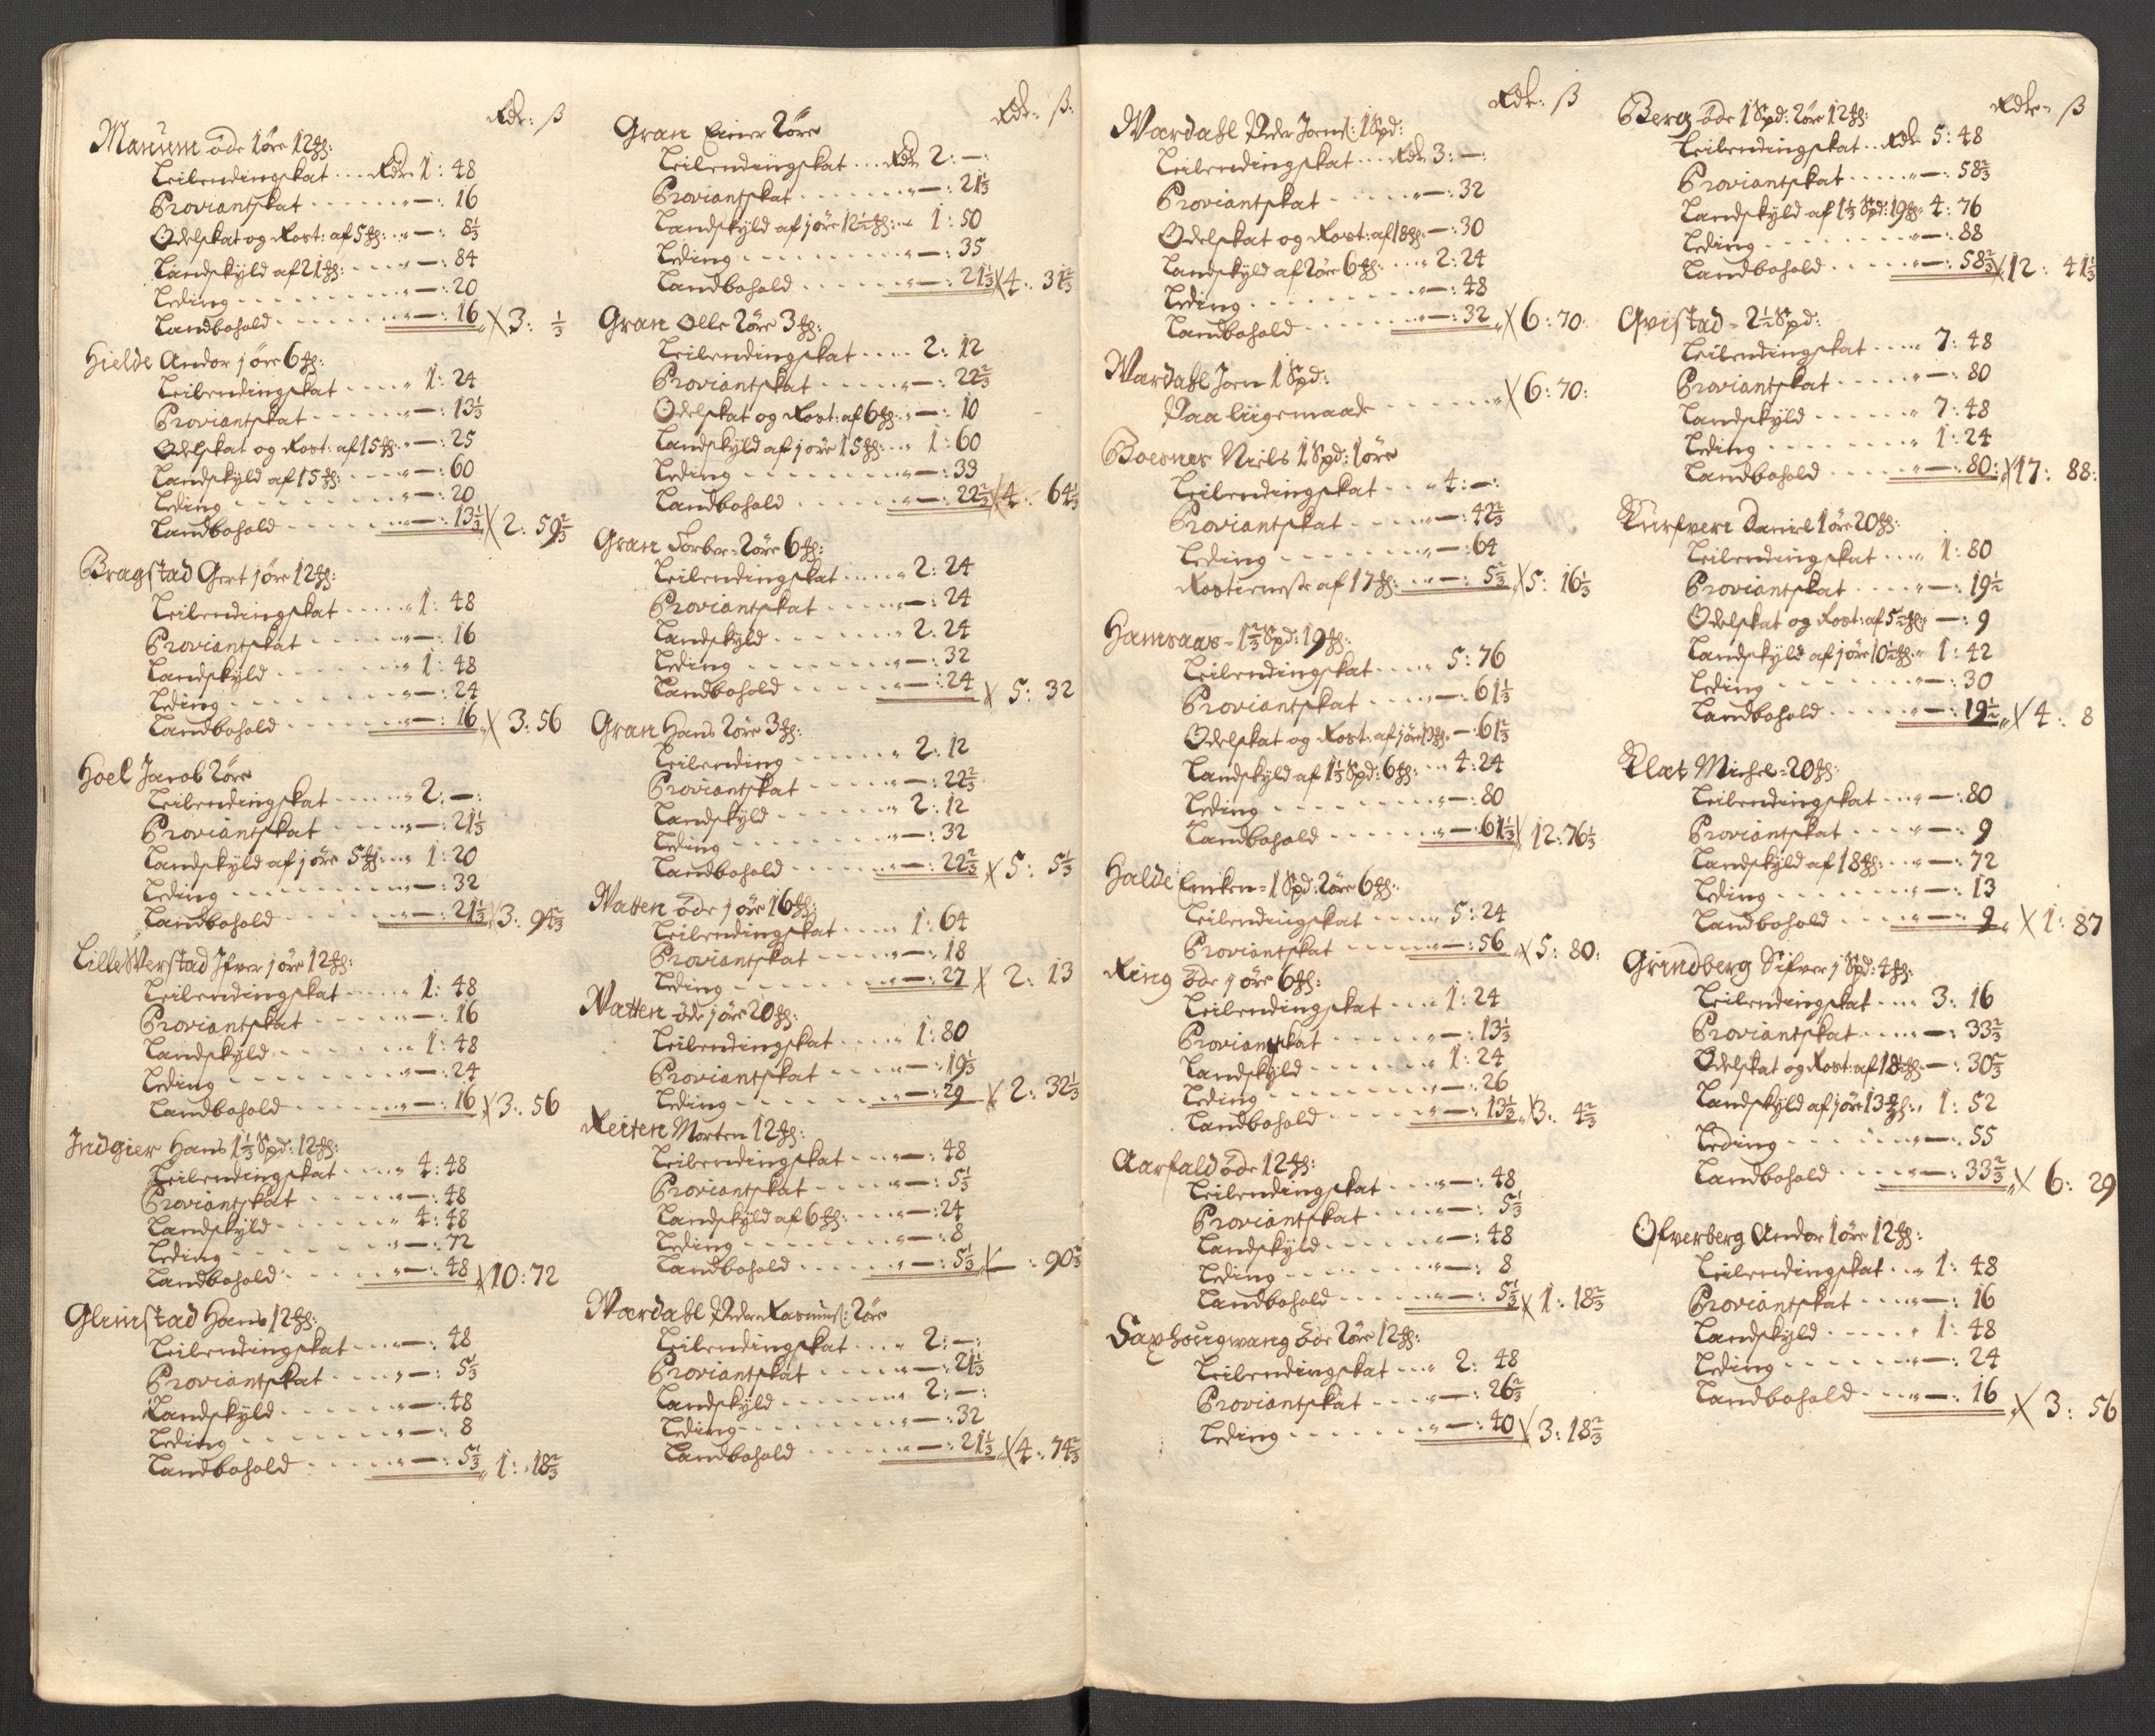 Rdr: ß
Manum öde 1 öre 12 mkl:
Leilendingskat ... Rdr 1: 48
Proviantskat ... —: 16
Odelskat og Rost: af 5 mkl: —: 8⅓
Landskyld af 21 mkl: —: 84
Leding ... —: 20
Landbohold ... —: 16 3: ⅓
Hielde Andor 1 öre 6 mkl:
Leilendingskat ... 1: 24
Proviantskat ... —: 13⅓
Odelskat og Rost: af 15 mkl: —: 25
Landskyld af 15 mkl: —: 60
Leding ... —: 20
Landbohold ... —: 13⅓ 2: 59⅔
Bragstad Gert 1 öre 12 mkl:
Leilendingskat ... 1: 48
Proviantskat ... —: 16
Landskyld ... 1: 48
Leding ... —: 24
Landbohold ... —: 16 3: 56
Hoel Jacob 2 öre
Leilendingskat ... 2: —:
Proviantskat ... —: 21⅓
Landskyld af 1 öre 5 mkl: 1: 20
Leding ... —: 32
Landbohold ... —: 21⅓ 3: 94⅔
Lille Werstad Ifver 1 öre 12 mkl:
Leilendingskat ... 1: 48
Proviantskat ... —: 16
Landskyld ... 1: 48
Leding ... —: 24
Landbohold ... —: 16 3: 56
Indgier Hans 1⅓ Spd: 12 mkl:
Leilendingskat ... 4: 48
Proviantskat ... —: 48
Landskyld ... 4: 48
Leding ... —: 72
Landbohold ... —: 48 10: 72
Glimstad Hans 12 mkl:
Leilendingskat ... —: 48
Proviantskat ... —: 5⅓
Landskyld ... —: 48
Leding ... —: 8
Landbohold ... —: 5⅓ 1: 18⅔
Rdr: ß:
Gran Einer 2 öre
Leilendingskat ... Rdr 2: —:
Proviantskat ... —: 21⅓
Landskyld af 1 öre 12½ mkl: 1: 50
Leding ... —: 35
Landbohold ... —: 21⅓ 4: 31⅔
Gran Olle 2 öre 3 mkl:
Leilendingskat ... 2: 12
Proviantskat ... —: 22⅔
Odelskat og Rost: af 6 mkl: —: 10
Landskyld af 1 öre 15 mkl: 1: 60
Leding ... —: 33
Landbohold ... —: 22⅔ 4: 64⅓
Gran Torber 2 öre 6 mkl:
Leilendingskat ... 2: 24
Proviantskat ... —: 24
Landskyld ... 2: 24
Leding ... —: 32
Landbohold ... —: 24 5: 32
Gran Hans 2 öre 3 mkl:
Leilending ... 2: 12
Proviantskat ... —: 22⅔
Landskyld ... 2: 12
Leding ... —: 32
Landbohold ... —: 22⅔ 5: 5⅓
Watten öde 1 öre 16 mkl:
Leilendingskat ... 1: 64
Proviantskat ... —: 18
Leding ... —: 27 2: 13
Watten öde 1 öre 20 mkl:
Leilendingskat ... 1: 80
Proviantskat ... —: 19⅓
Leding ... —: 29 2: 32⅓
Reiten Morten 12 mkl:
Leilendingskat ... —: 48
Proviantskat ... —: 5⅓
Landskyld af 6 mkl: —: 24
Leding ... —: 8
Landbohold ... —: 5⅓ —: 90⅔
Wardahl Peder Rasmus: 2 öre
Leilendingskat ... 2: —:
Proviantskat ... —: 21⅓
Landskyld ... 2: —:
Leding ... —: 32
Landbohold ... —: 21⅓ 4: 74⅔
Rdr: ß
Wardahl Peder Joens: 1 Spd:
Leilendingskat ... Rdr 3: —:
Proviantskat ... —: 32
Odelskat og Rost: af 18 mkl: —: 30
Landskyld af 2 öre 6 mkl: 2: 24
Leding ... —: 48
Landbohold ... —: 32 6: 70:
Wardahl Joen 1 Spd:
Paa liigemaade ... 6: 70:
Boesnes Niels 1 Spd: 1 öre
Leilendingskat ... 4: —:
Proviantskat ... —: 42⅔
Leding ... —: 64
Rostieneste af 17 mkl: —: 5⅔ 5: 16⅓
Hamsaas 1⅔ Spd: 19 mkl:
Leilendingskat ... 5: 76
Proviantskat ... —: 61⅓
Odelskat og Rost: af 1 öre 13 mkl: —: 61⅔
Landskyld af 1⅓ Spd: 6 mkl: 4: 24
Leding ... —: 80
Landbohold ... —: 61⅓ 12: 76⅓
Halde Encken 1 Spd: 2 öre 6 mkl:
Leilendingskat ... 5: 24
Proviantskat ... —: 56 5: 80:
Ring öde 1 öre 6 mkl:
Leilendingskat ... 1: 24
Proviantskat ... —: 13⅓
Landskyld ... 1: 24
Leding ... —: 26
Landbohold ... —: 13⅓ 3: 4⅔
Aarfald öde 12 mkl:
Leilendingskat ... —: 48
Proviantskat ... —: 5⅓
Landskyld ... —: 48
Leding ... —: 8
Landbohold ... —: 5⅓ 1: 18⅔
Saxhougwang öde 2 öre 12 mkl:
Leilendingskat ... 2: 48
Proviantskat ... —: 26⅔
Leding ... —: 40 3: 18⅔
Rdr: ß
Berg öde 1 Spd: 2 öre 12 mkl:
Leilendingskat .. Rdr 5: 48
Proviantskat ... —: 58⅔
Landskyld af 1⅓ Spd: 19 mkl: 4: 76
Leding ... —: 88
Landbohold ... —: 58⅔ 12: 41⅓
Qvistad 2½ Spd:
Leilendingskat ... 7: 48
Proviantskat ... —: 80
Landskyld ... 7: 48
Leding ... 1: 24
Landbohold ... —: 80: 17: 88:
Kurfveri Daniel 1 öre 20 mkl:
Leilendingskat ... 1: 80
Proviantskat ... —: 19½
Odelskat og Rost: af 5½ mkl: —: 9
Landskyld af 1 öre 10½ mkl: 1: 42
Leding ... —: 30
Landbohold ... —: 19½ 4: 8
Klæt Michel 20 mkl:
Leilendingskat ... —: 80
Proviantskat ... —: 9
Landskyld af 18 mkl: —: 72
Leding ... —: 13
Landbohold ... —: 9 1: 87
Grindberg Sifver 1 Spd: 4 mkl:
Leilendingskat ... 3: 16
Proviantskat ... —: 33⅔
Odelskat og Rost: af 18 mkl: —: 30⅔
Landskyld af 1 öre 13 mkl: 1: 52
Leding ... —: 55
Landbohold ... —: 33⅔ 6: 29
Ofverberg Andor 1 öre 12 mkl:
Leilendingskat ... 1: 48
Proviantskat ... —: 16
Landskyld ... 1: 48
Leding ... —: 24
Landbohold ... —: 16 3: 56